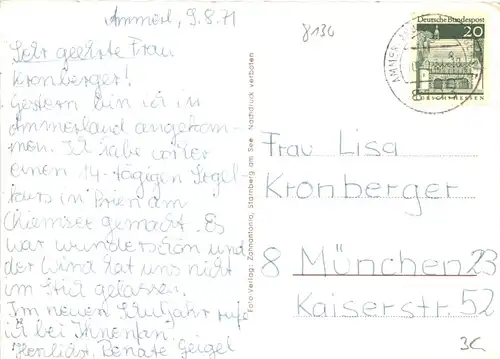 Ammerl., 9.8.71
Sehr geehrte Frau
Kronberger!
Gestern bin ich in
Ammerland angekom-
men. Ich habe vorher
einen 14-tägigen Segel-
kurs in Prien am
Chiemsee gemacht. Es
war wunderschön und
der Wind hat uns nicht
im Stich gelassen.
Im neuen Schuljahr rufe
ich bei Ihnen an.
Herzlichst, Renate Geigel
Foto Verlag: Zannantonia, Starnberg am See. Nachdruck verboten
8136
AMMER
Deutsche Bundespost
20
LORSCH/HESSEN
Frau Lisa
Kronberger
8 München 23
Kaiserstr. 52